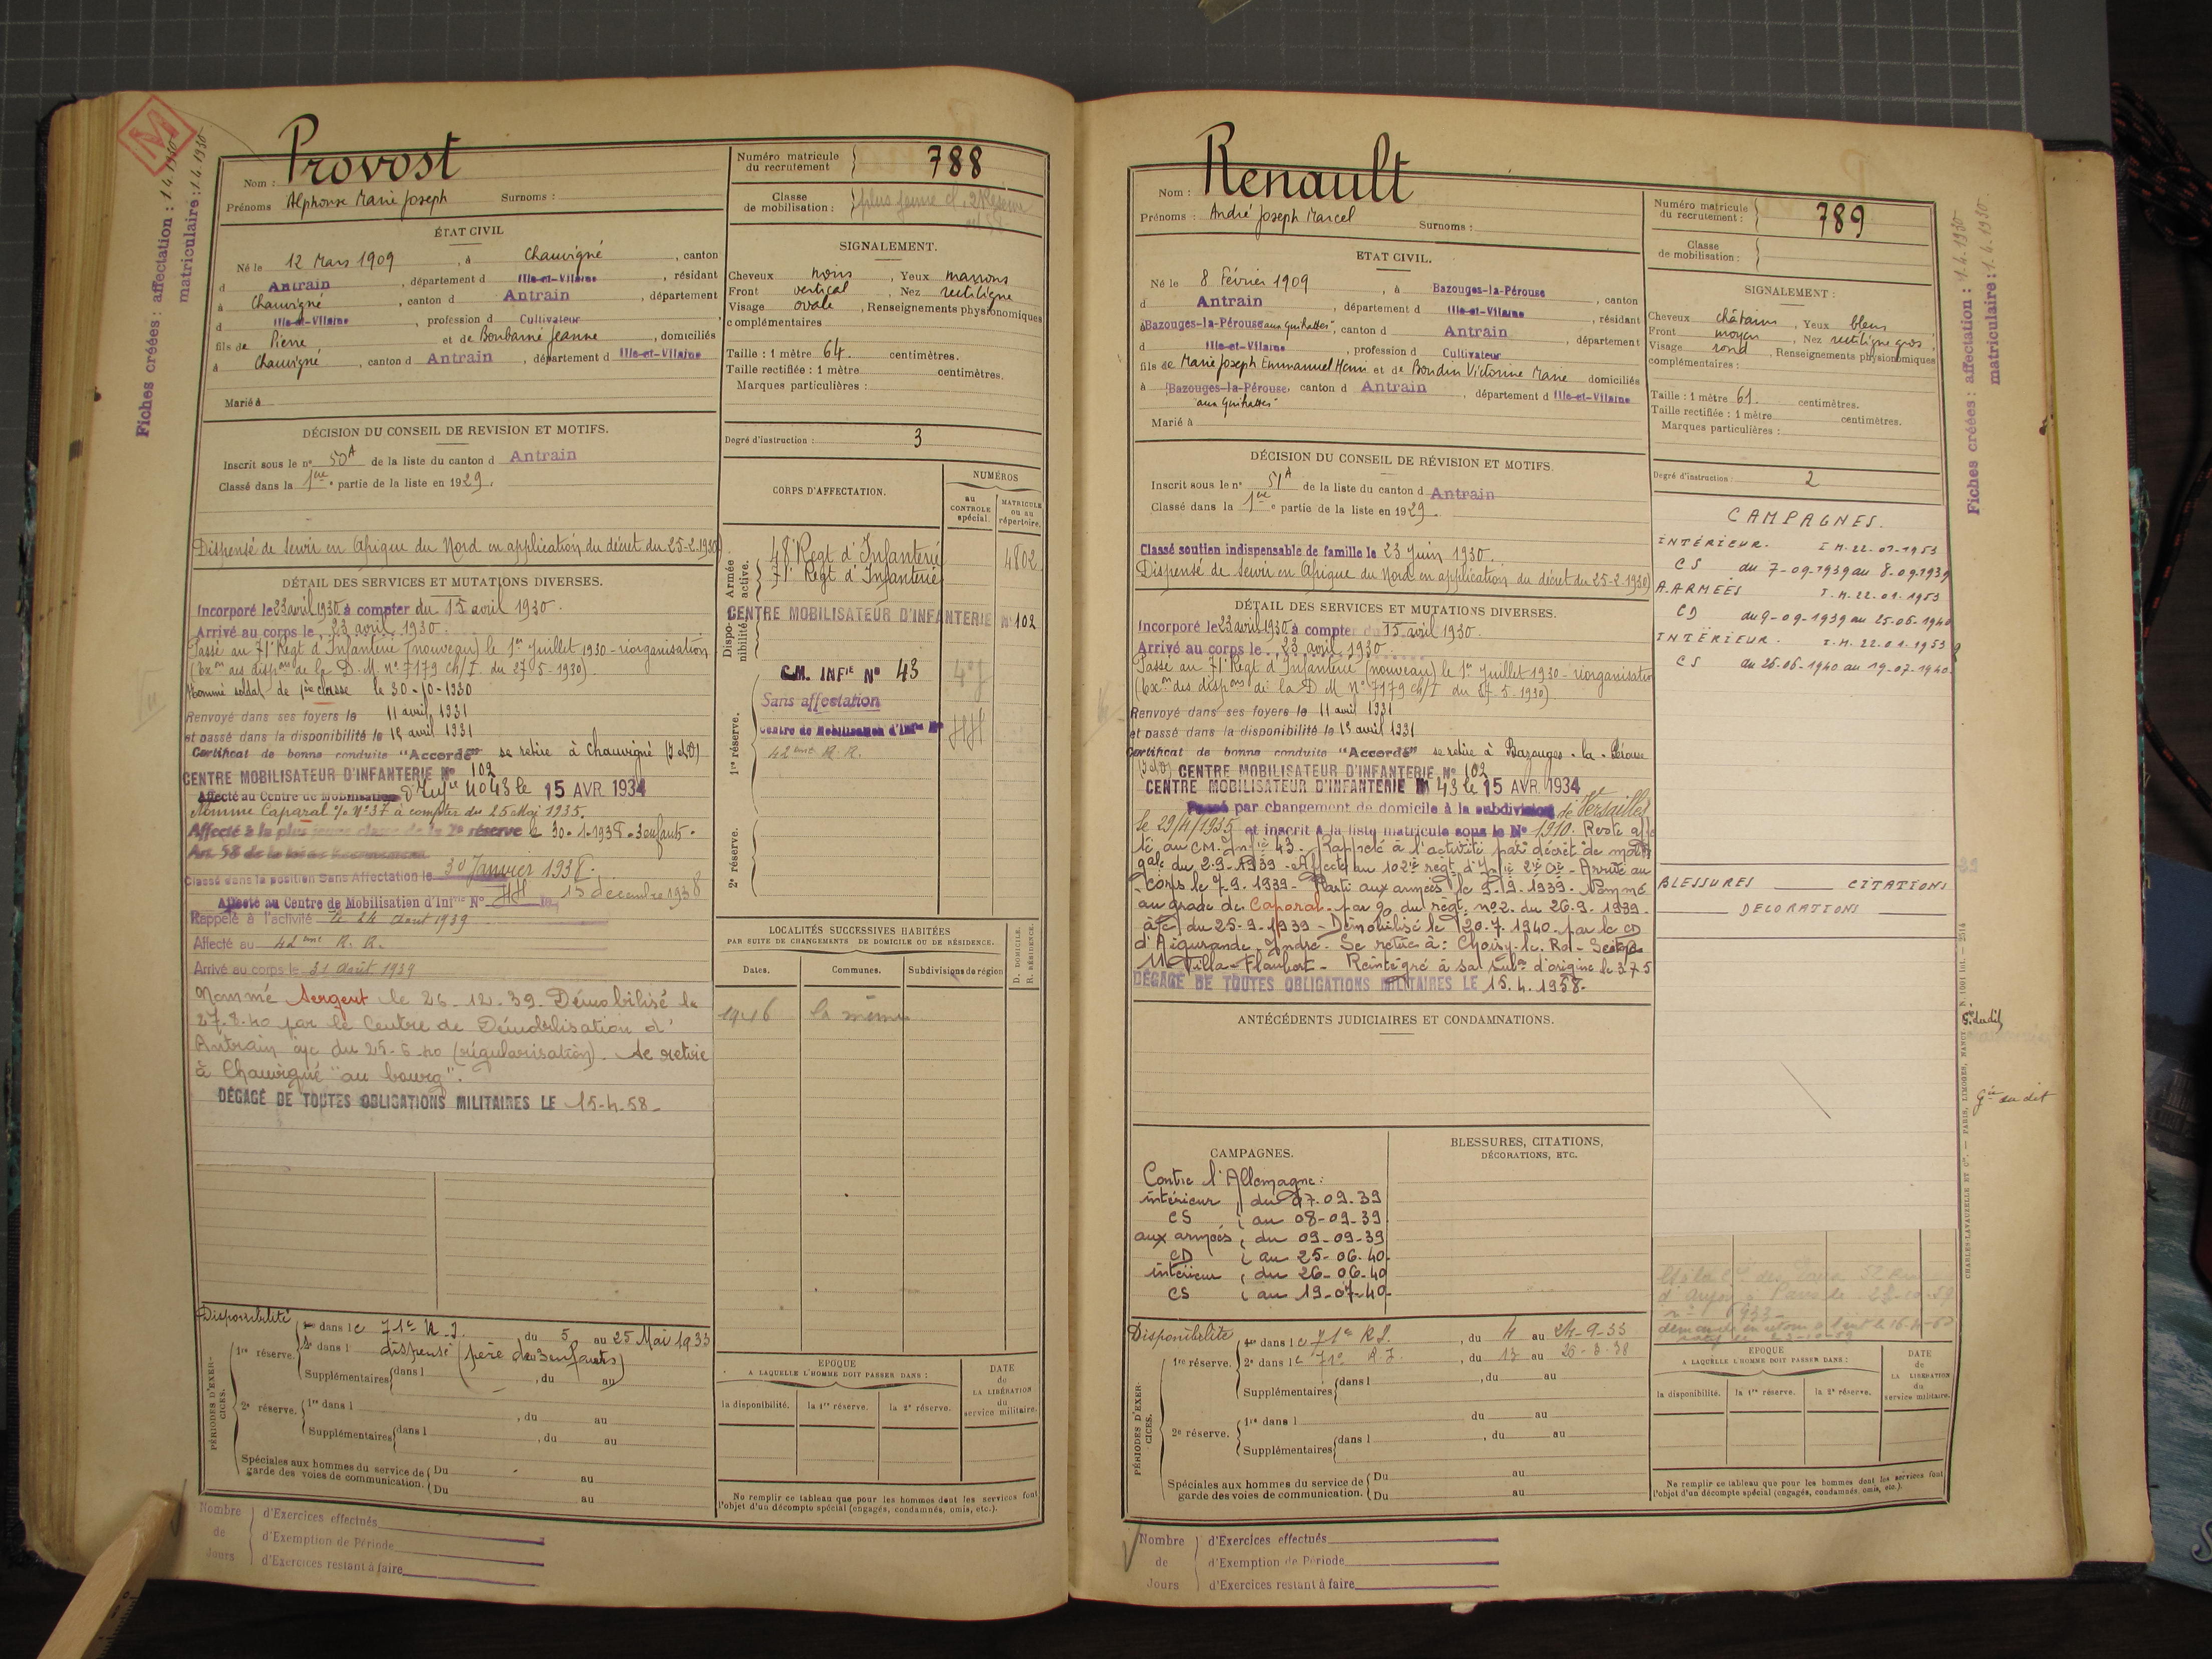 Fiches créées : affectation : 1.4.1930
matriculaire : 1.4.1930
M
Nom : Provost
Prénoms Alphonse Marie Joseph Surnoms :
ÉTAT CIVIL
Né le 12 Mars 1909, à Chauvigné, canton
d Antrain, département d Ille-et-Vilaine, résidant
à Chauvigné, canton d Antrain, département
d Ille-et-Vilaine, profession d Cultivateur
fils de Pierre et de Jeanne, domiciliés
à Chauvigné, canton d Antrain, département d Ille-et-Vilaine
Marié à
DÉCISION DU CONSEIL DE REVISION ET MOTIFS.
Inscrit sous le n° 50A de la liste du canton d Antrain
Classé dans la 1ère partie de la liste en 1929.
Dispensé de servir en Afrique du Nord en application du décret du 25-2-1930
DÉTAIL DES SERVICES ET MUTATIONS DIVERSES.
Incorporé le 23 avril 1930 à compter du 15 avril 1930.
Arrivé au corps le 23 avril 1930.
Passé au 71e Régt d'Infanterie (nouveau) le 1er Juillet 1930 - réorganisation
(Exon des dispons de la D.M. n° 7179 Ch/I. du 27-5-1930).
Nommé soldat de 1ère classe le 30-10-1930
Renvoyé dans ses foyers le 11 avril 1931
et passé dans la disponibilité le 15 avril 1931
Certificat de bonne conduite "Accordé" se retire à Chauvigné (D et R)
CENTRE MOBILISATEUR D'INFANTERIE N° 102
Affecté au Centre de Mobilisation d'Infie N° 43 le 15 AVR 1934
Nommé Caporal N° 37 à compter du 25 Mai 1935.
Affecté à la plus jeune classe de la 2e réserve le 30-1-1938 - 3 enfants.
Art. 58 de la loi de Recrutement
Classé dans la position Sans Affectation le 30 Janvier 1938.
Affecté au Centre de Mobilisation d'Infrie N° 15 décembre 1938
Rappelé à l'activité le 24 Août 1939
Affecté au 42eme R. R.
Arrivé au corps le 31 Août 1939
Nommé Sergent le 26-12-39. Démobilisé le
27-8-40 par le Centre de Démobilisation d'
Antrain àjc du 25-6-40 (régularisation). Se retire
à Chauvigné "au bourg".
DÉGAGÉ DE TOUTES OBLIGATIONS MILITAIRES LE 15-4-58-
Disponibilité
PÉRIODES D'EXERCICES.
1re réserve. 1re dans le 71e R.I. du 5 au 25 Mai 1933
2e dans l dispensé (père de 3 enfants)
Supplémentaires dans l, du au
2e réserve. 1re dans l, du au
Supplémentaires dans l, du au
Spéciales aux hommes du service de garde des voies de communication. Du au
Du au
Nombre de Jours
d'Exercices effectués
d'Exemption de Période
d'Exercices restant à faire
Numéro matricule du recrutement 788
Classe de mobilisation :
SIGNALEMENT.
Cheveux noirs, Yeux marrons
Front vertical, Nez rectiligne
Visage ovale, Renseignements physionomiques
complémentaires
Taille : 1 mètre 64. centimètres.
Taille rectifiée : 1 mètre centimètres.
Marques particulières :
Degré d'instruction : 3
CORPS D'AFFECTATION.
NUMÉROS
au CONTROLE spécial.
MATRICULE ou au répertoire.
Armée active.
48e Régt d'Infanterie 4802
71e Régt d'Infanterie
Disponibilité.
CENTRE MOBILISATEUR D'INFANTERIE N° 102
1re réserve.
C.M. INFIE N° 43
Sans affectation
Centre de Mobilisation d'Infrie N°
42eme R. R.
2e réserve.
LOCALITÉS SUCCESSIVES HABITÉES
PAR SUITE DE CHANGEMENTS DE DOMICILE OU DE RÉSIDENCE.
D. DOMICILE. R. RÉSIDENCE.
Dates. Communes. Subdivisions de région
EPOQUE
A LAQUELLE L'HOMME DOIT PASSER DANS :
DATE de LA LIBÉRATION du service militaire.
la disponibilité. la 1re réserve. la 2e réserve.
Ne remplir ce tableau que pour les hommes dont les services font
l'objet d'un décompte spécial (engagés, condamnés, omis, etc.).
Nom : Renault
Prénoms : André Joseph Marcel Surnoms :
ETAT CIVIL.
Né le 8 Février 1909, à Bazouges-la-Pérouse, canton
d Antrain, département d Ille-et-Vilaine, résidant
à Bazouges-la-Pérouse, canton d Antrain, département
d Ille-et-Vilaine, profession d Cultivateur
fils de Marie Joseph Emmanuel Henri et de Boudin Victorine Marie domiciliés
à Bazouges-la-Pérouse, canton d Antrain, département d Ille-et-Vilaine
Marié à
DÉCISION DU CONSEIL DE RÉVISION ET MOTIFS.
Inscrit sous le n° 51A de la liste du canton d Antrain
Classé dans la 1ère partie de la liste en 1929.
Classé soutien indispensable de famille le 23 Juin 1930.
Dispensé de servir en Afrique du Nord en application du décret du 25-2-1930
DÉTAIL DES SERVICES ET MUTATIONS DIVERSES.
Incorporé le 23 avril 1930 à compter du 15 avril 1930.
Arrivé au corps le 23 avril 1930.
Passé au 71e Régt d'Infanterie (nouveau) le 1er Juillet 1930 - réorganisation
(Exon des dispons de la D M n° 7179 Ch/I du 27-5-1930)
Renvoyé dans ses foyers le 11 avril 1931
et passé dans la disponibilité le 15 avril 1931
Certificat de bonne conduite "Accordé" se retire à Bazouges-la-Pérouse
(D et R) CENTRE MOBILISATEUR D'INFANTERIE N° 102
CENTRE MOBILISATEUR D'INFANTERIE N° 43 le 15 AVR 1934
Passé par changement de domicile à la subdivision de Versailles
le 29/4/1935 et inscrit à la liste matricule sous le N° 1910. Reste affec
té au CM. Infie 43. Rappelé à l'activité par décret de mobon
gale du 2.9.1939 - Affecté au 102ie régt d'Infie - Arrivé au
corps le 7.9.1939 - Parti aux armées le 9.9.1939. Nommé
au grade de Caporal par du régt. n° 2. du 26.9.1939
àjc du 25-9-1939 - Démobilisé le 20.7.1940 par le CD
d'Aigurande. Indre. Se retire à : Choisy-le-Roi - Seine
11 Villa-Flaubert - Réintégré à sa subon d'origine le
DÉGAGÉ DE TOUTES OBLIGATIONS MILITAIRES LE 15.4.1958-
ANTÉCÉDENTS JUDICIAIRES ET CONDAMNATIONS.
CAMPAGNES.
Contre l'Allemagne :
intérieur du 07.09.39
CS au 08-09-39
aux armées du 09-09-39
CD au 25-06-40
intérieur du 26-06-40
CS au 19-07-40
BLESSURES, CITATIONS,
DÉCORATIONS, ETC.
Disponibilité
PÉRIODES D'EXERCICES.
1re réserve. 1re dans le 71e R.I., du 4 au 24-9-33
2e dans le 71e R.I., du 13 au
Supplémentaires dans l, du au
2e réserve. 1re dans l du au
Supplémentaires dans l, du au
Spéciales aux hommes du service de garde des voies de communication. Du au
Du au
Nombre de Jours
d'Exercices effectués
d'Exemption de Période
d'Exercices restant à faire
Numéro matricule du recrutement : 789
Classe de mobilisation :
SIGNALEMENT :
Cheveux châtains, Yeux bleus
Front moyen, Nez rectiligne gros
Visage rond, Renseignements physionomiques
complémentaires :
Taille : 1 mètre 61. centimètres.
Taille rectifiée : 1 mètre centimètres.
Marques particulières :
Degré d'instruction : 2
CAMPAGNES.
INTÉRIEUR. I.M. 22.01.1953
CS du 7-09-1939 au 8.09.1939
A. ARMÉES I.M. 22.01.1953
CD du 9-09-1939 au 25-06-1940
INTÉRIEUR. I.M. 22.01.1953
CS du 26-06-1940 au 19-07-1940
BLESSURES CITATIONS
DECORATIONS
EPOQUE
A LAQUELLE L'HOMME DOIT PASSER DANS :
DATE de LA LIBÉRATION du service militaire.
la disponibilité. la 1re réserve. la 2e réserve.
Ne remplir ce tableau que pour les hommes dont les services font
l'objet d'un décompte spécial (engagés, condamnés, omis, etc.).
Fiches créées : affectation : 1.4.1930
matriculaire : 1.4.1930
CHARLES-LAVAUZELLE ET Cie. — PARIS, LIMOGES, NANCY